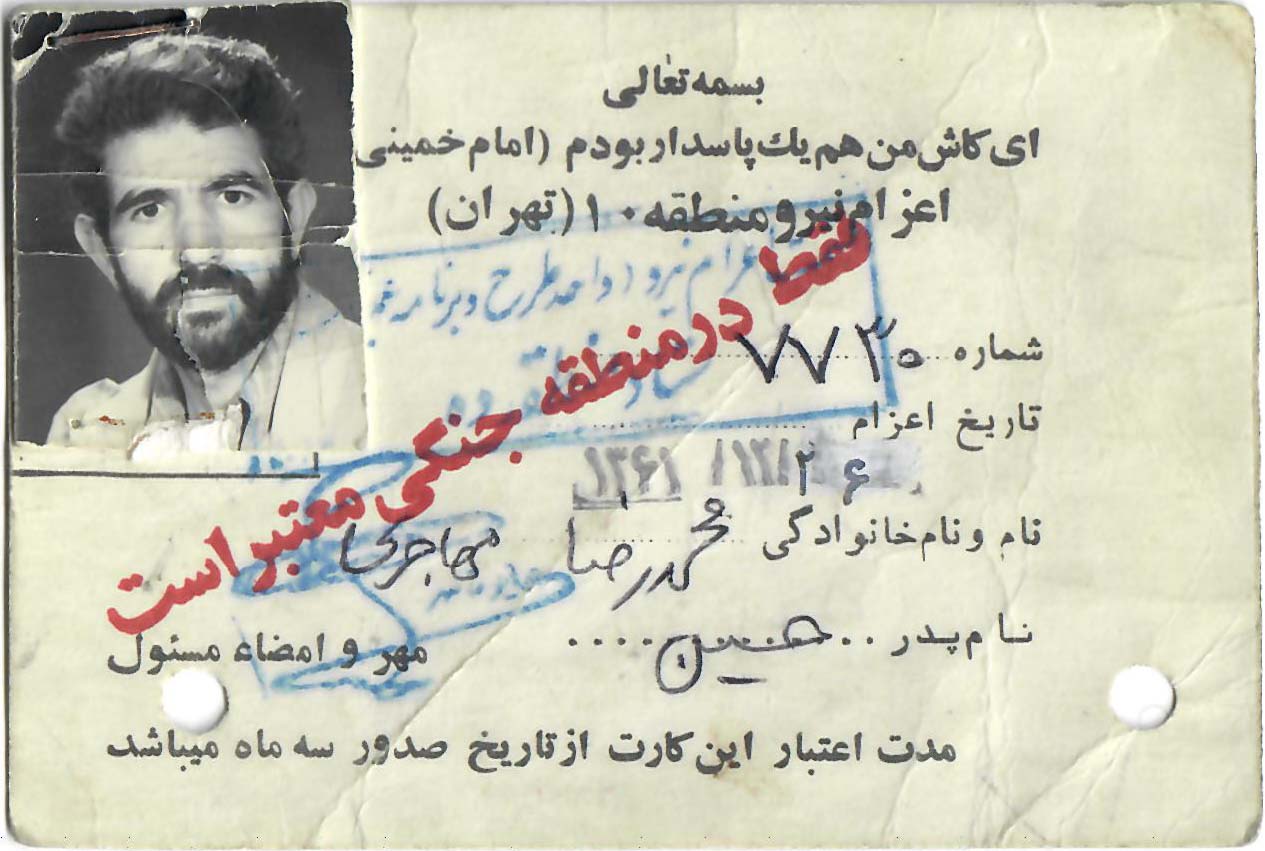 بسمه تعالی
ای کاش من هم یك پاسدار بودم (امام خمینی
اعزام نیرو منطقه ۱۰ (تهران)
اعزام نیرو واحد طرح و برنامه
فقط در منطقه جنگی معتبر است
شماره ۷۷۳۰
تاریخ اعزام
۲۶ /۱۲/ ۱۳۶۱
نام و نام خانوادگی محمدرضا مهاجری
نام پدر حسین
مهر و امضاء مسئول
مدت اعتبار این کارت از تاریخ صدور سه ماه میباشد